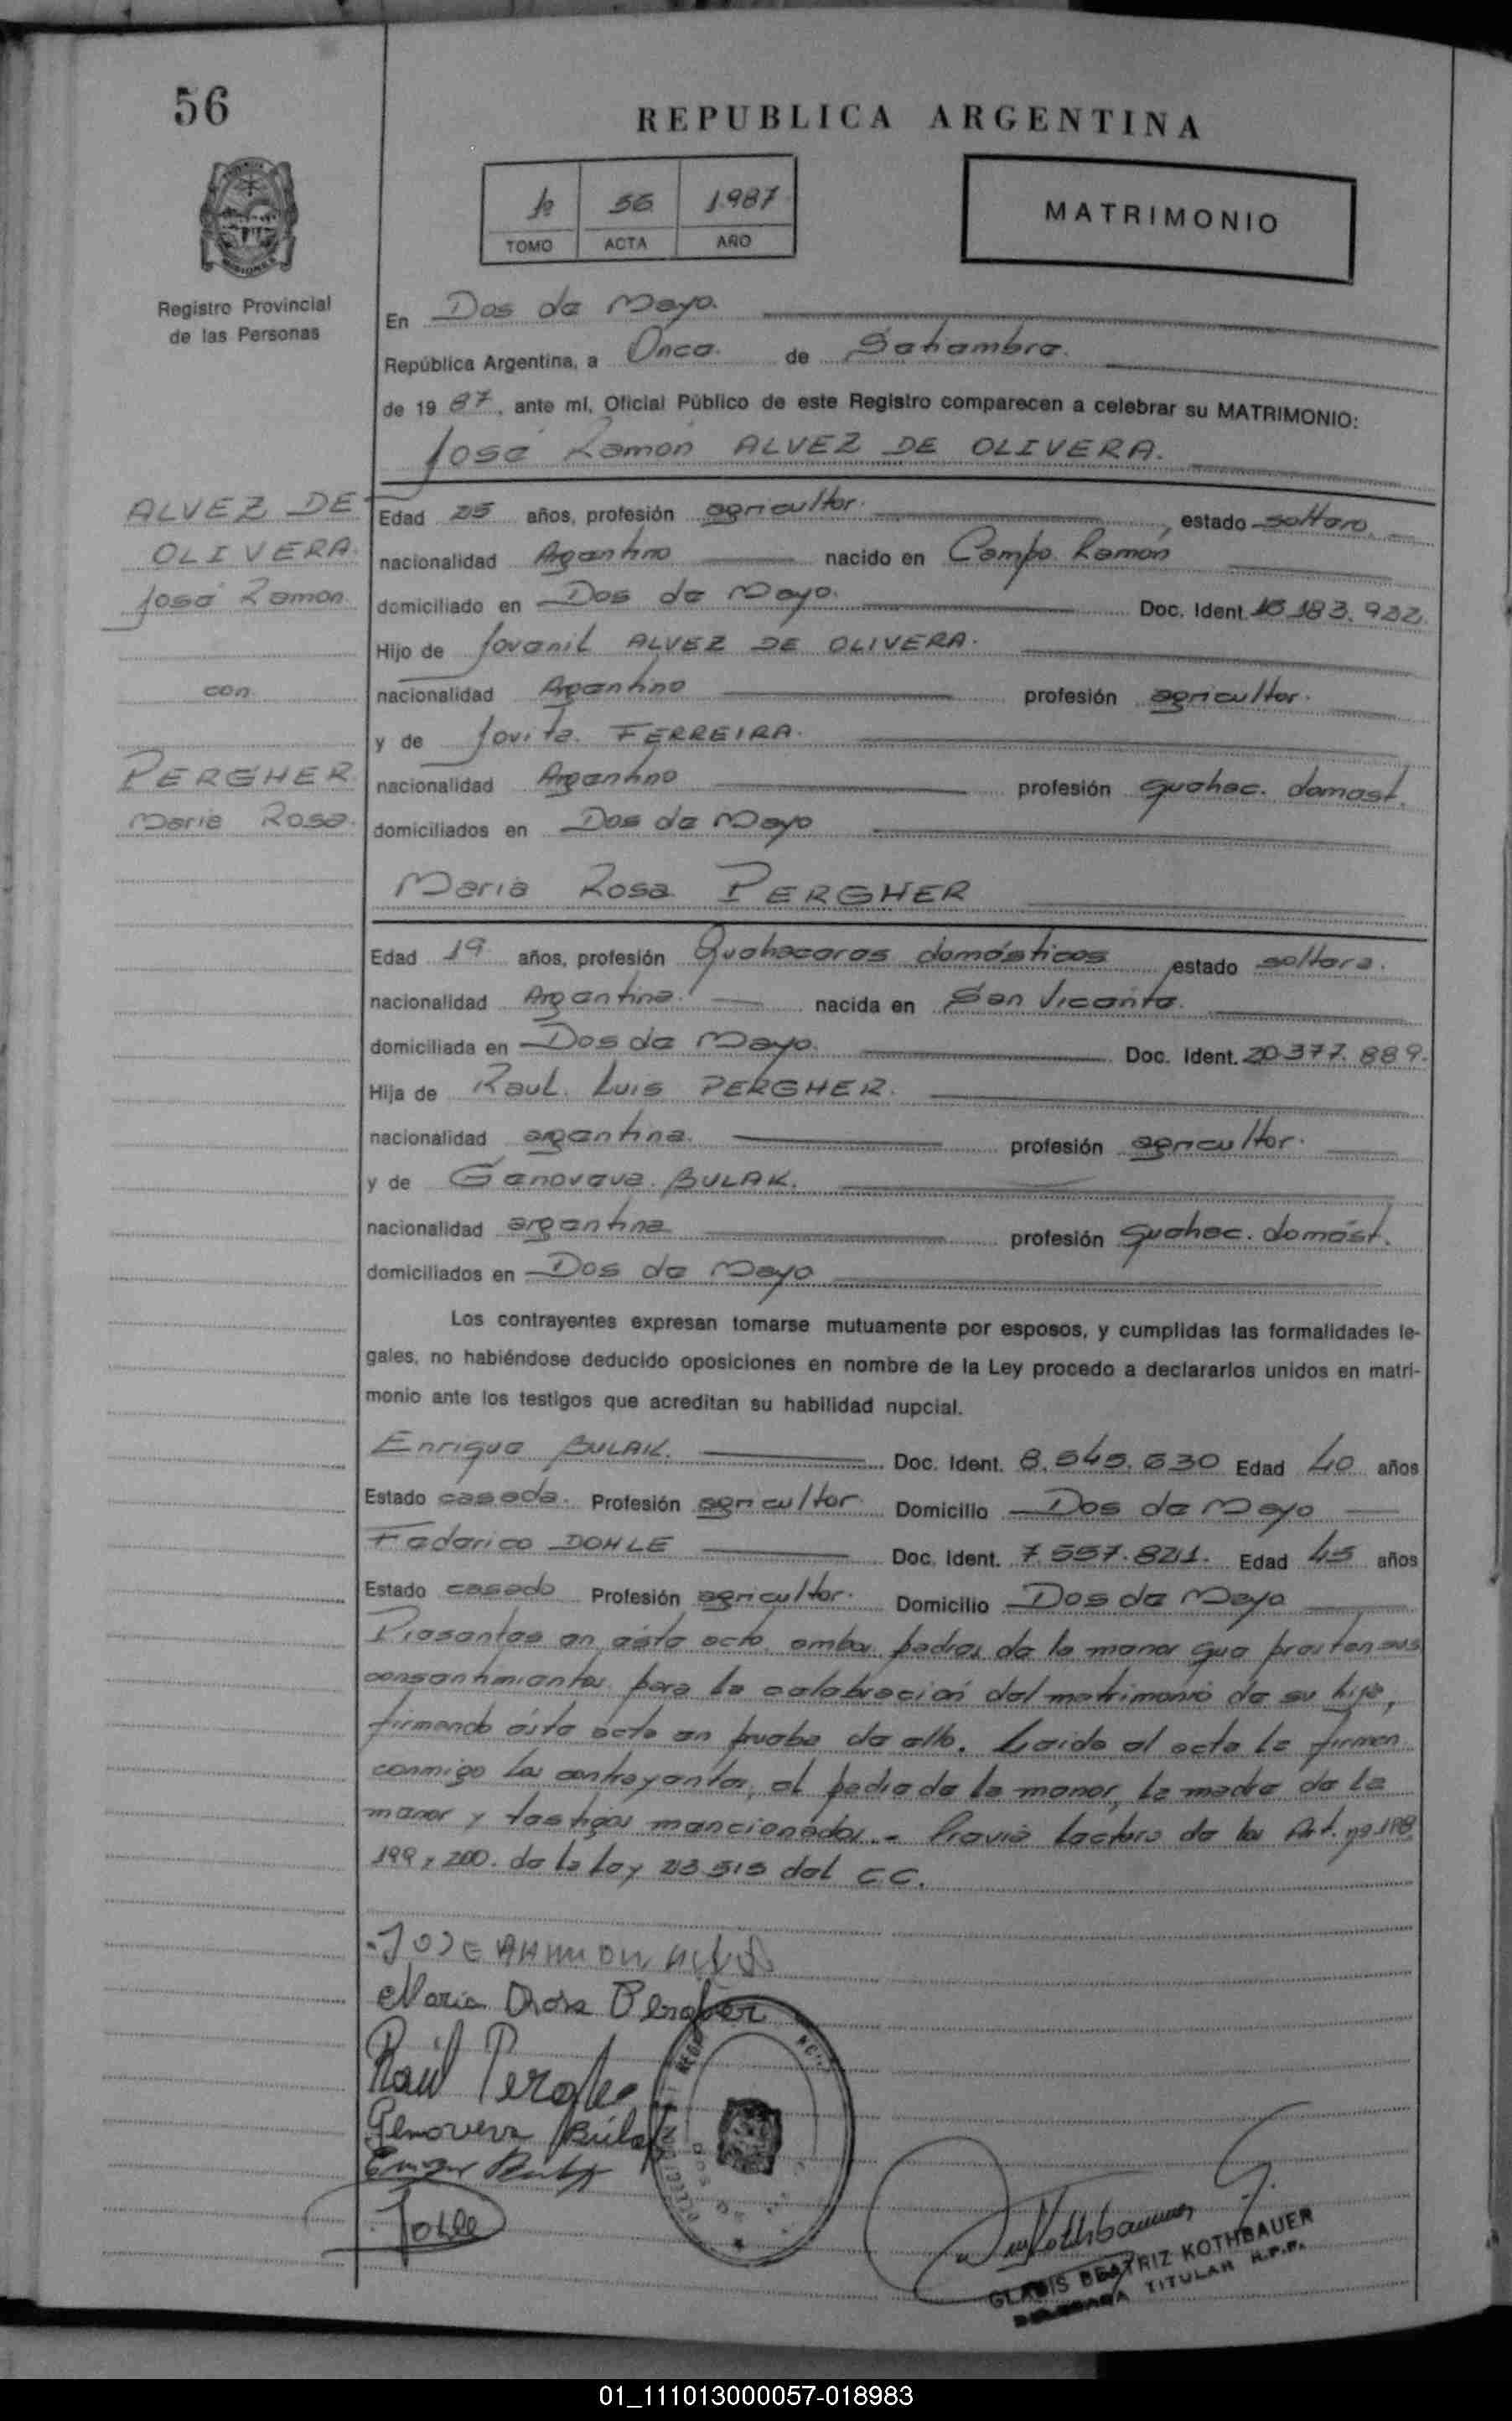 56
REPUBLICA ARGENTINA
1º 56 1987
TOMO ACTA AÑO
MATRIMONIO
MISIONES
Registro Provincial
de las Personas
En Dos de Mayo.
República Argentina, a Once de Setiembre
de 1987, ante mí, Oficial Público de este Registro comparecen a celebrar su MATRIMONIO:
José Ramon ALVEZ DE OLIVERA.
ALVEZ DE
OLIVERA.
José Ramon.
con
PERGHER
Maria Rosa.
Edad 25 años, profesión agricultor. estado soltero.
nacionalidad Argentino nacido en Campo Ramón
domiciliado en Dos de Mayo. Doc. Ident. 183.922.
Hijo de Jovenil ALVEZ DE OLIVERA.
nacionalidad Argentino profesión agricultor.
y de Jovita FERREIRA.
nacionalidad Argentino profesión quehac. domest.
domiciliados en Dos de Mayo
Maria Rosa PERGHER
Edad 19 años, profesión Quehaceres domésticos estado soltera.
nacionalidad Argentina. nacida en San Vicente.
domiciliada en Dos de Mayo. Doc. Ident. 20.377.889.
Hija de Raul Luis PERGHER.
nacionalidad argentina. profesión agricultor.
y de Genoveva BULAK.
nacionalidad argentina profesión quehac. domést.
domiciliados en Dos de Mayo
Los contrayentes expresan tomarse mutuamente por esposos, y cumplidas las formalidades le-
gales, no habiéndose deducido oposiciones en nombre de la Ley procedo a declararlos unidos en matri-
monio ante los testigos que acreditan su habilidad nupcial.
Enrique BULAK. Doc. Ident. 8.545.630 Edad 40 años
Estado casado. Profesión agricultor. Domicilio Dos de Mayo
Federico DOHLE Doc. Ident. 7.557.821. Edad 45 años
Estado casado Profesión agricultor. Domicilio Dos de Mayo
Presentes en éste acto ambos padres de la menor que prestan sus
consentimientos para la celebración del matrimonio de su hija,
firmando ésta acta en prueba de ello. Leida el acta la firman
conmigo los contrayentes, el padre de la menor, la madre de la
menor y testigos mencionados.- Previa lectura de los Art. nº 198
199 y 200. de la Ley 23.515 del C.C.
JOSE RAMON
Maria Rosa Pergher
Raúl Pergher
Genoveva Bulak
Dohle
Kothbauer
GLADIS BEATRIZ KOTHBAUER
DELEGADA TITULAR R.P.P.
01_111013000057-018983